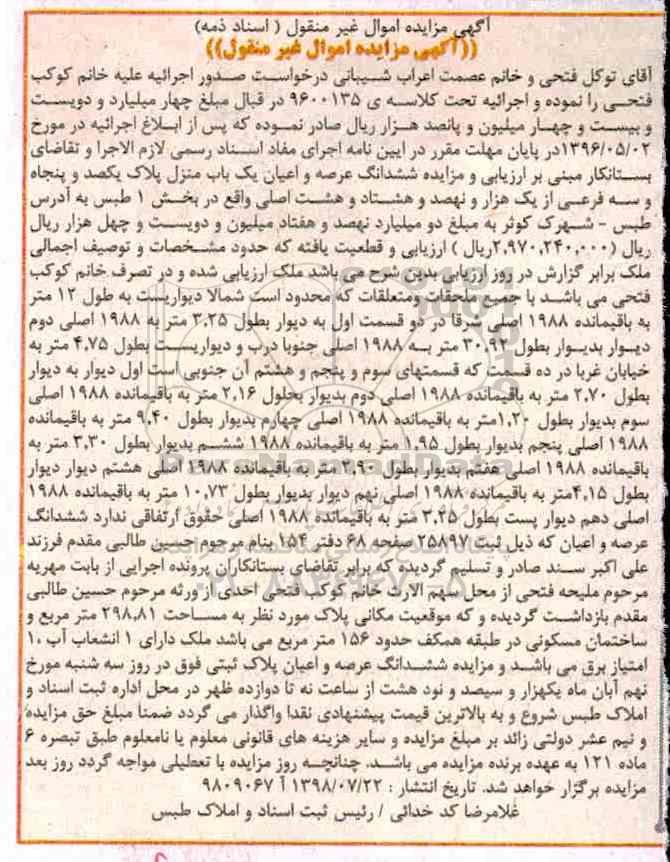 آگهی مزایده اموال غیر منقول ( اسناد ذمه)
((آگهی مزایده اموال غیر منقول))
آقای توکل فتحی و خانم عصمت اعراب شیبانی درخواست صدور اجرائیه علیه خانم کوکب
فتحی را نموده و اجرائیه تحت کلاسه ی ۹۶۰۰۱۳۵ در قبال مبلغ چهار میلیارد و دویست
و بیست و چهار میلیون و پانصد هزار ریال صادر نموده که پس از ابلاغ اجرائیه در مورخ
۱۳۹۶/۰۵/۰۲در پایان مهلت مقرر در ایین نامه اجرای مفاد اسناد رسمی لازم الاجرا و تقاضای
بستانکار مبنی بر ارزیابی و مزایده ششدانگ عرصه و اعیان یک باب منزل پلاک یکصد و پنجاه
و سه فرعی از یک هزار و نهصد و هشتاد و هشت اصلی واقع در بخش ۱ طبس به آدرس
طبس - شهرک کوثر به مبلغ دو میلیارد نهصد و هفتاد میلیون و دویست و چهل هزار ریال
ریال (۲,۹۷۰,۲۴۰,۰۰۰ریال ) ارزیابی و قطعیت یافته که حدود مشخصات و توصیف اجمالی
ملک برابر گزارش در روز ارزیابی بدین شرح می باشد ملک ارزیابی شده و در تصرف خانم کوکب
فتحی می باشد با جمیع ملحقات ومتعلقات که محدود است شمالا دیواریست به طول ۱۲ متر
به باقیمانده ۱۹۸۸ اصلی شرقا در دو قسمت اول به دیوار بطول ۳,۲۵ متر به ۱۹۸۸ اصلی دوم
دیوار بدیوار بطول ۳۰,۹۲ متر به ۱۹۸۸ اصلی جنوبا درب و دیواریست بطول ۴,۷۵ متر به
خیابان غربا در ده قسمت که قسمتهای سوم و پنجم و هشتم آن جنوبی است اول دیوار به دیوار
بطول ۲,۷۰ متر به باقیمانده ۱۹۸۸ اصلی دوم بدیوار بحلول ۲,۱۶ متر به باقیمانده ۱۹۸۸ اصلی
سوم بدیوار بطول ۱,۲۰متر به باقیمانده ۱۹۸۸ اصلی چهارم بدیوار بطول ۹,۴۰ متر به باقیمانده
۱۹۸۸ اصلی پنجم بدیوار بطول ۱,۹۵ متر به باقیمانده ۱۹۸۸ ششم بدیوار بطول ۳,۳۰ متر به
باقیمانده ۱۹۸۸ اصلی هفتم بدیوار بطول ۲,۹۰ متر به باقیمانده ۱۹۸۸ اصلی هشتم دیوار دیوار
بطول ۴,۱۵متر به باقیمانده ۱۹۸۸ اصلی نهم دیوار بدیوار بطول ۱۰,۷۳ متر به باقیمانده ۱۹۸۸
اصلی دهم دیوار پست بطول ۳,۲۵ متر به باقیمانده ۱۹۸۸ اصلی حقوق ارتفاقی ندارد ششدانگ
عرصه و اعیان که ذیل ثبت ۲۵۸۹۷ صفحه ۶۸ دفتر ۱۵۴ بنام مرحوم حسین طالبی مقدم فرزند
علی اکبر سند صادر و تسلیم گردیده که برابر تقاضای بستانکاران پرونده اجرایی از بابت مهریه
مرحوم ملیحه فتحی از محل سهم الارث خانم کوکب فتحی احدی از ورثه مرحوم حسین طالبی
مقدم بازداشت گردیده و که موقعیت مکانی پلاک مورد نظر به مساحت ۲۹۸,۸۱ متر مربع و
ساختمان مسکونی در طبقه همکف حدود ۱۵۶ متر مربع می باشد ملک دارای ۱ انشعاب آب ۱۰
امتیاز برق می باشد و مزایده ششدانگ عرصه و اعیان پلاک ثبتی فوق در روز سه شنبه مورخ
نهم آبان ماه یکهزار و سیصد و نود هشت از ساعت نه تا دوازده ظهر در محل اداره ثبت اسناد و
املاک طبس شروع و به بالاترین قیمت پیشنهادی نقدا واگذار می گردد ضمنا مبلغ حق مزایده
و نیم عشر دولتی زائد بر مبلغ مزایده و سایر هزینه های قانونی معلوم یا نامعلوم طبق تبصره ۶
ماده ۱۲۱ به عهده برنده مزایده می باشد. چنانچه روز مزایده با تعطیلی مواجه گردد روز بعد
مزایده برگزار خواهد شد. تاریخ انتشار : ۱۳۹۸/۰۷/۲۲ آ ۹۸۰۹۰۶۷
غلامرضا کد خدائی / رئیس ثبت اسناد و املاک طبس